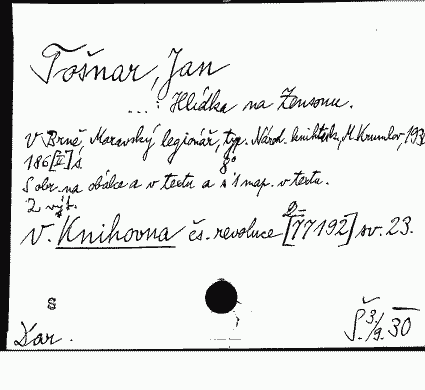 Tošnar, Jan
...: Hlídka na Zensonu.
V Brně, Moravský legionář, typ. Národ. knihtisk., M. Krumlov, 193
186 [II] s. 8°
S obr. na obálce a v textu a s 1 map. v textu.
2 výt.
V. Knihovna čs. revoluce [77192] sv. 23.
8
Dar. Š. 3/9. 30